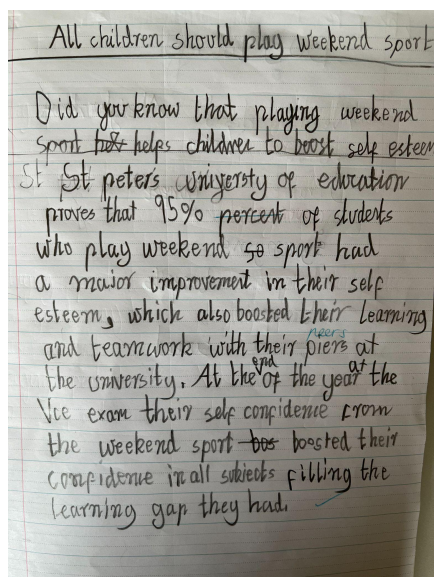 All children should play weekend sport
Did you know that playing weekend
sport helps children to boost self esteem
St St peters universty of education
proves that 95% percent of students
who play weekend so sport had
a major improvement in their self
esteem, which also boosted their learning
peers
and teamwork with their piers at
end at
the university. At the of the year the
Vce exam their self confidence from
the weekend sport bos boosted their
confidence in all subjects filling the
learning gap they had.